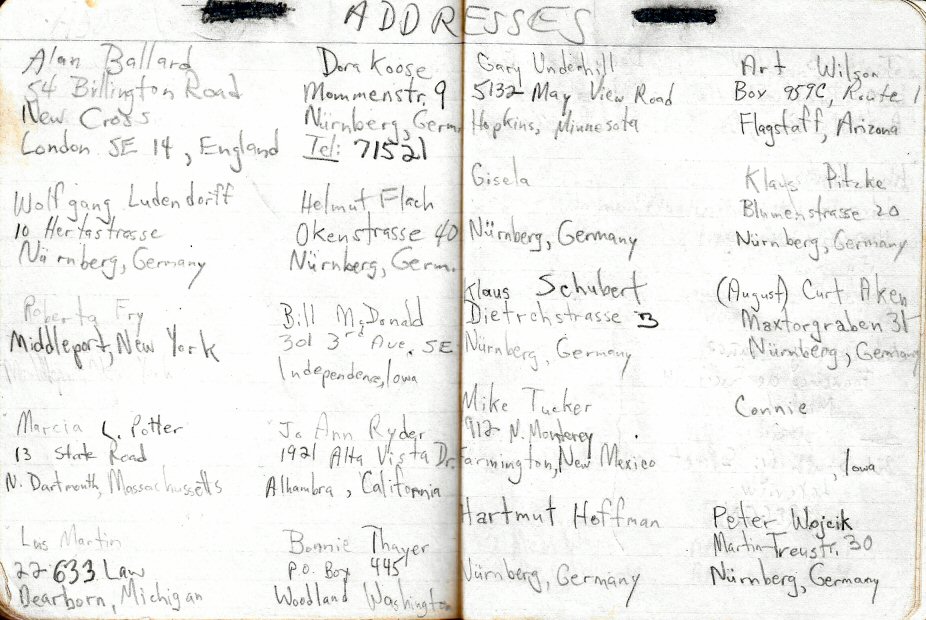 ADDRESSES
Alan Ballard
54 Billington Road
New Cross
London SE 14, England
Wolfgang Ludendorff
10 Hertastrasse
Nürnberg, Germany
Roberta Fry
Middleport, New York
Marcia L. Potter
13 State Road
N. Dartmouth, Massachussetts
Lus Martin
22633 Law
Dearborn, Michigan
Dora Koose
Mommenstr. 9
Nürnberg, Germ.
Tel: 71521
Helmut Flach
Okenstrasse 40
Nürnberg, Germ.
Bill McDonald
301 3rd Ave. SE
Independence, Iowa
Jo Ann Ryder
1921 Alta Vista Dr.
Alhambra, California
Bonnie Thayer
P.O. Box 445
Woodland Washington
Gary Underhill
5132 May View Road
Hopkins, Minnesota
Gisela
Nürnberg, Germany
Klaus Schubert
Dietrchstrasse 3
Nürnberg, Germany
Mike Tucker
912 N. Monterey
Farmington, New Mexico
Hartmut Hoffman
Nürnberg, Germany
Art Wilson
Box 959C, Route 1
Flagstaff, Arizona
Klaus Pitzke
Blumenstrasse 20
Nürnberg, Germany
(August) Curt Aken
Maxtorgraben 31
Nürnberg, Germany
Connie
, Iowa
Peter Wojcik
Martin-Treustr. 30
Nürnberg, Germany